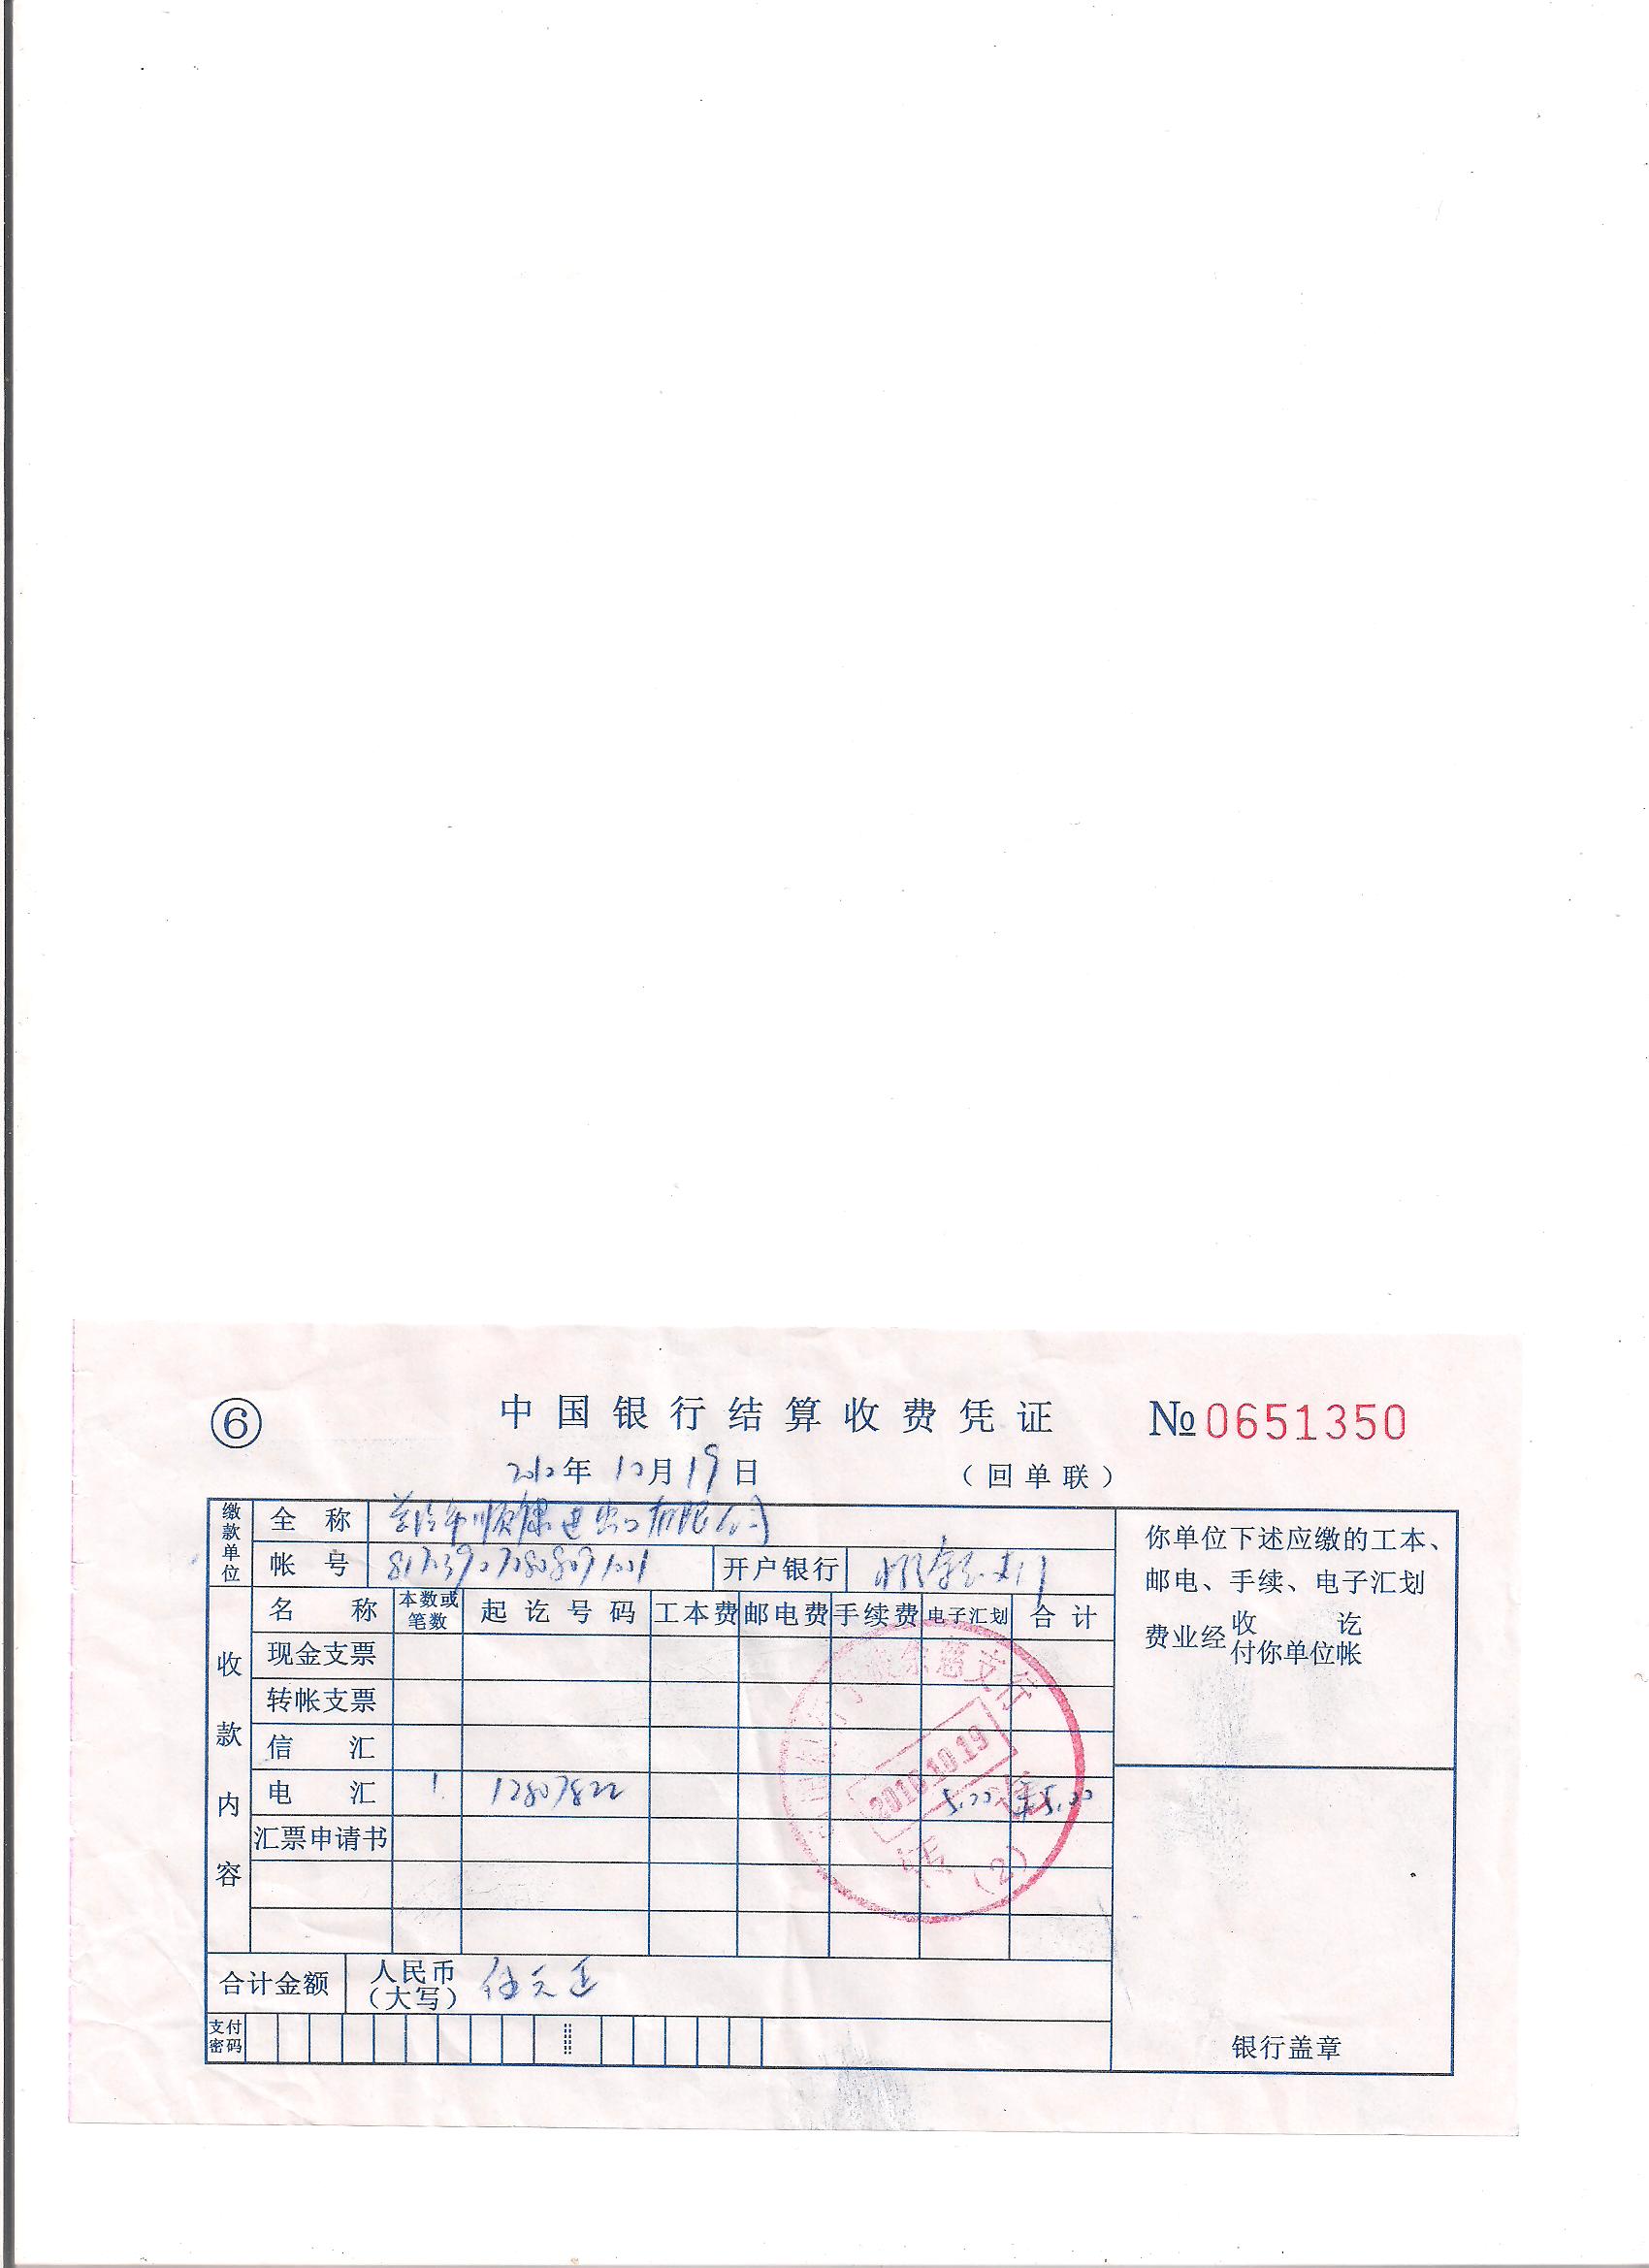 ⑥ 中国银行结算收费凭证 № 0651350
2010年 10月 19日 （回单联）
缴款单位 全称 顺 进出口有限公司
帐号 开户银行
收款内容 名称 本数或笔数 起讫号码 工本费 邮电费 手续费 电子汇划 合计
现金支票
转帐支票
信汇
电汇 1 12807822 5.00 ¥5.00
汇票申请书
合计金额 人民币（大写） 伍元正
支付密码
你单位下述应缴的工本、
邮电、手续、电子汇划
费业经收讫
付你单位帐
银行盖章
2010.10.19
转
(2)